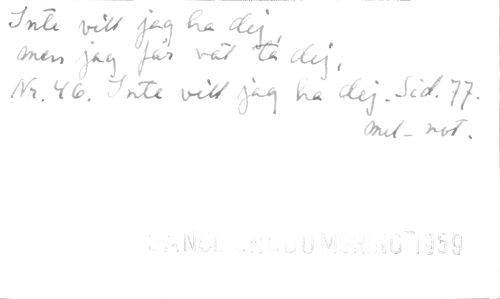 Inte vill jag ha dej,
men jag får väl ta dej,
Nr. 46. Inte vill jag ha dej. Sid. 77.
mel-not.
1959